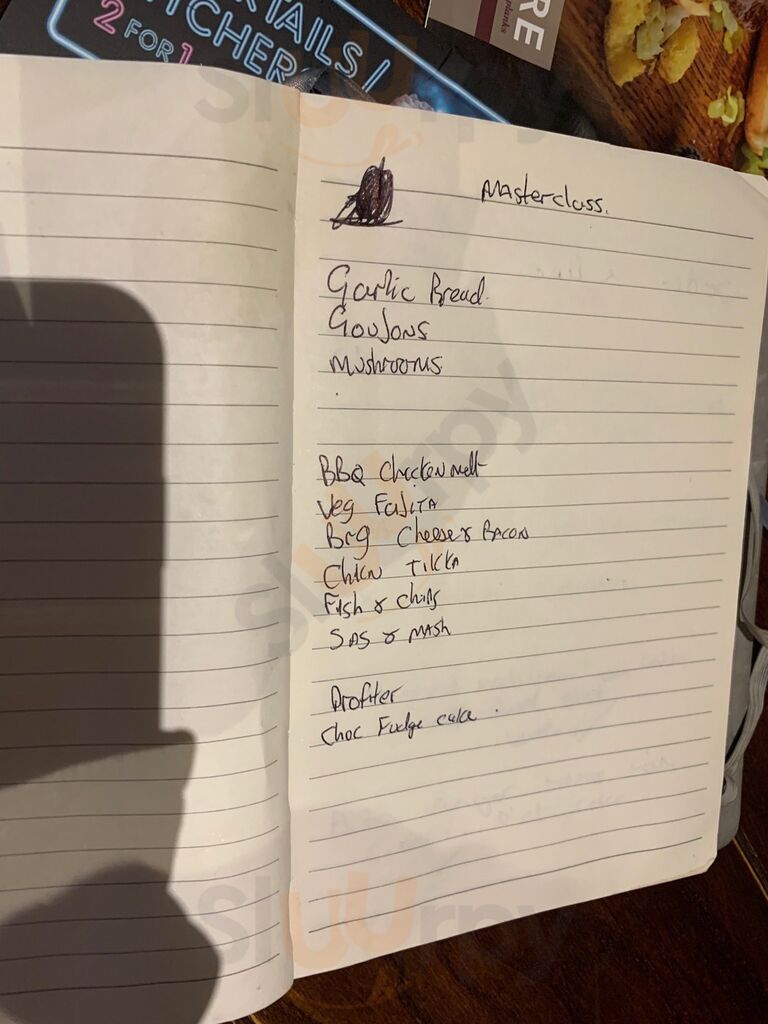 TAILS/
2 FOR 1
RE
planks
Masterclass.
Garlic Bread.
Goujons
Mushrooms
BBQ Chicken melt
Veg FaJiTA
Brg Cheese & BACON
Chkn TIKKA
Fish & Chips
SAS & MASH
Profiter
Choc Fudge cake.
Sluurpy
Sluurpy
Sluurpy